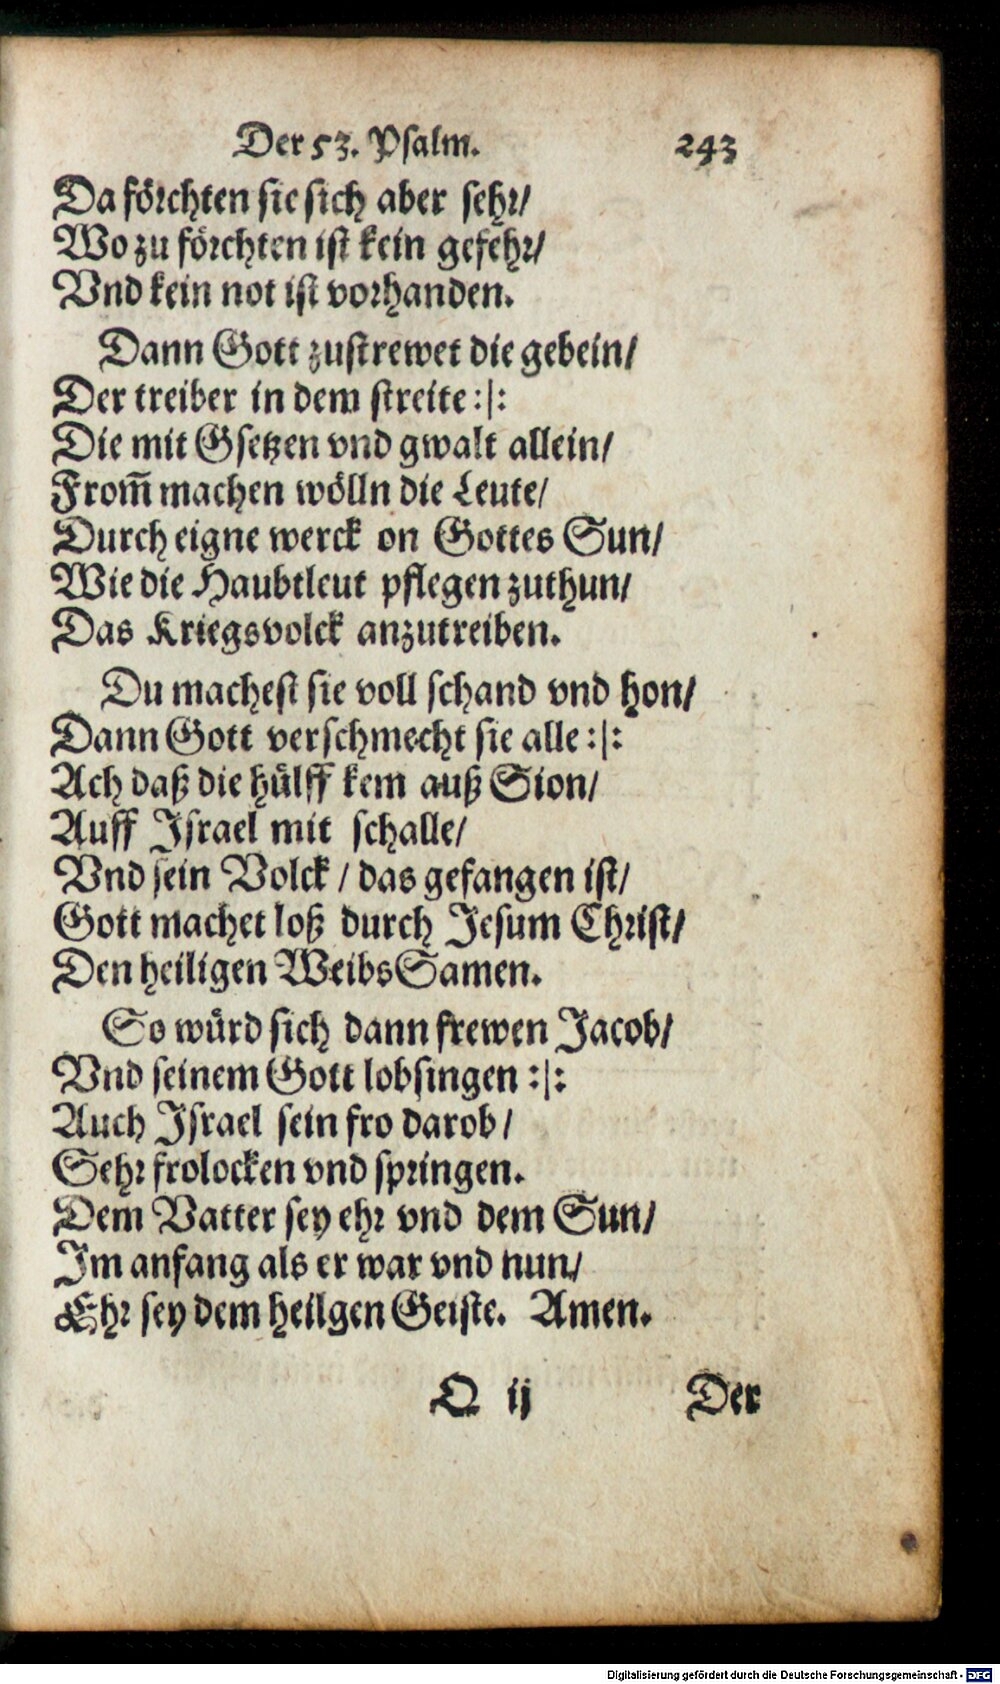 Der 53. Psalm. 243
Da förchten sie sich aber sehr/
Wo zu förchten ist kein gefehr/
Vnd kein not ist vorhanden.
Dann Gott zustrewet die gebein/
Der treiber in dem streite :|:
Die mit Gsetzen vnd gwalt allein/
From̃ machen wölln die Leute/
Durch eigne werck on Gottes Sun/
Wie die Haubtleut pflegen zuthun/
Das Kriegsvolck anzutreiben.
Du machest sie voll schand vnd hon/
Dann Gott verschmecht sie alle :|:
Ach daß die hülff kem auß Sion/
Auff Israel mit schalle/
Vnd sein Volck / das gefangen ist/
Gott machet loß durch Jesum Christ/
Den heiligen Weibs Samen.
So würd sich dann frewen Jacob/
Vnd seinem Gott lobsingen :|:
Auch Israel sein fro darob/
Sehr frolocken vnd springen.
Dem Vatter sey ehr vnd dem Sun/
Im anfang als er war vnd nun/
Ehr sey dem heilgen Geiste. Amen.
Q ij Der
Digitalisierung gefördert durch die Deutsche Forschungsgemeinschaft - DFG